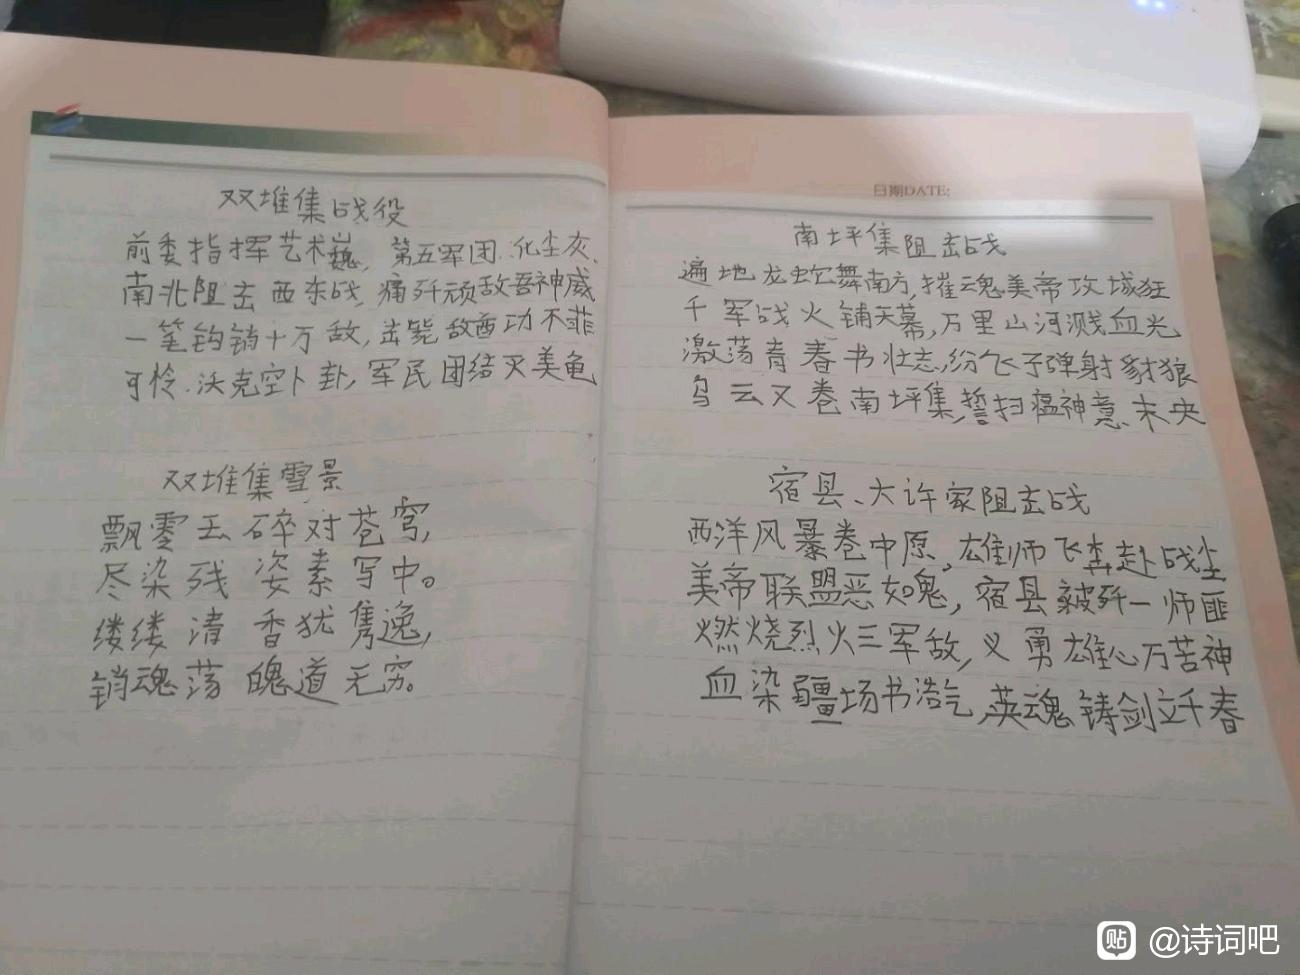 双堆集战役
前委指挥艺术巍,第五军团.化尘灰.
南北阻击西东战,痛歼顽敌吾神威
一笔钩销十万敌,击毙敌酋功不菲
可怜.沃克空卜卦,军民团结灭美龟
双堆集雪景
飘零玉碎对苍穹,
尽染残姿素写中。
缕缕清香犹隽逸,
销魂荡魄道无穷。
日期DATE:
南坪集阻击战
遍地龙蛇舞南方,摧魂美帝攻城狂
千军战火铺天幕,万里山河溅血光
激荡青春书壮志,纷飞子弹射豺狼
乌云又卷南坪集,誓扫瘟神意未央
宿县、大许家阻击战
西洋风暴卷中愿,雄师飞奔赴战尘
美帝联盟恶如鬼,宿县被歼一师匪
燃烧烈火三军敌,义勇雄心万苦神
血染疆场书浩气,英魂铸剑立千春
贴 @诗词吧